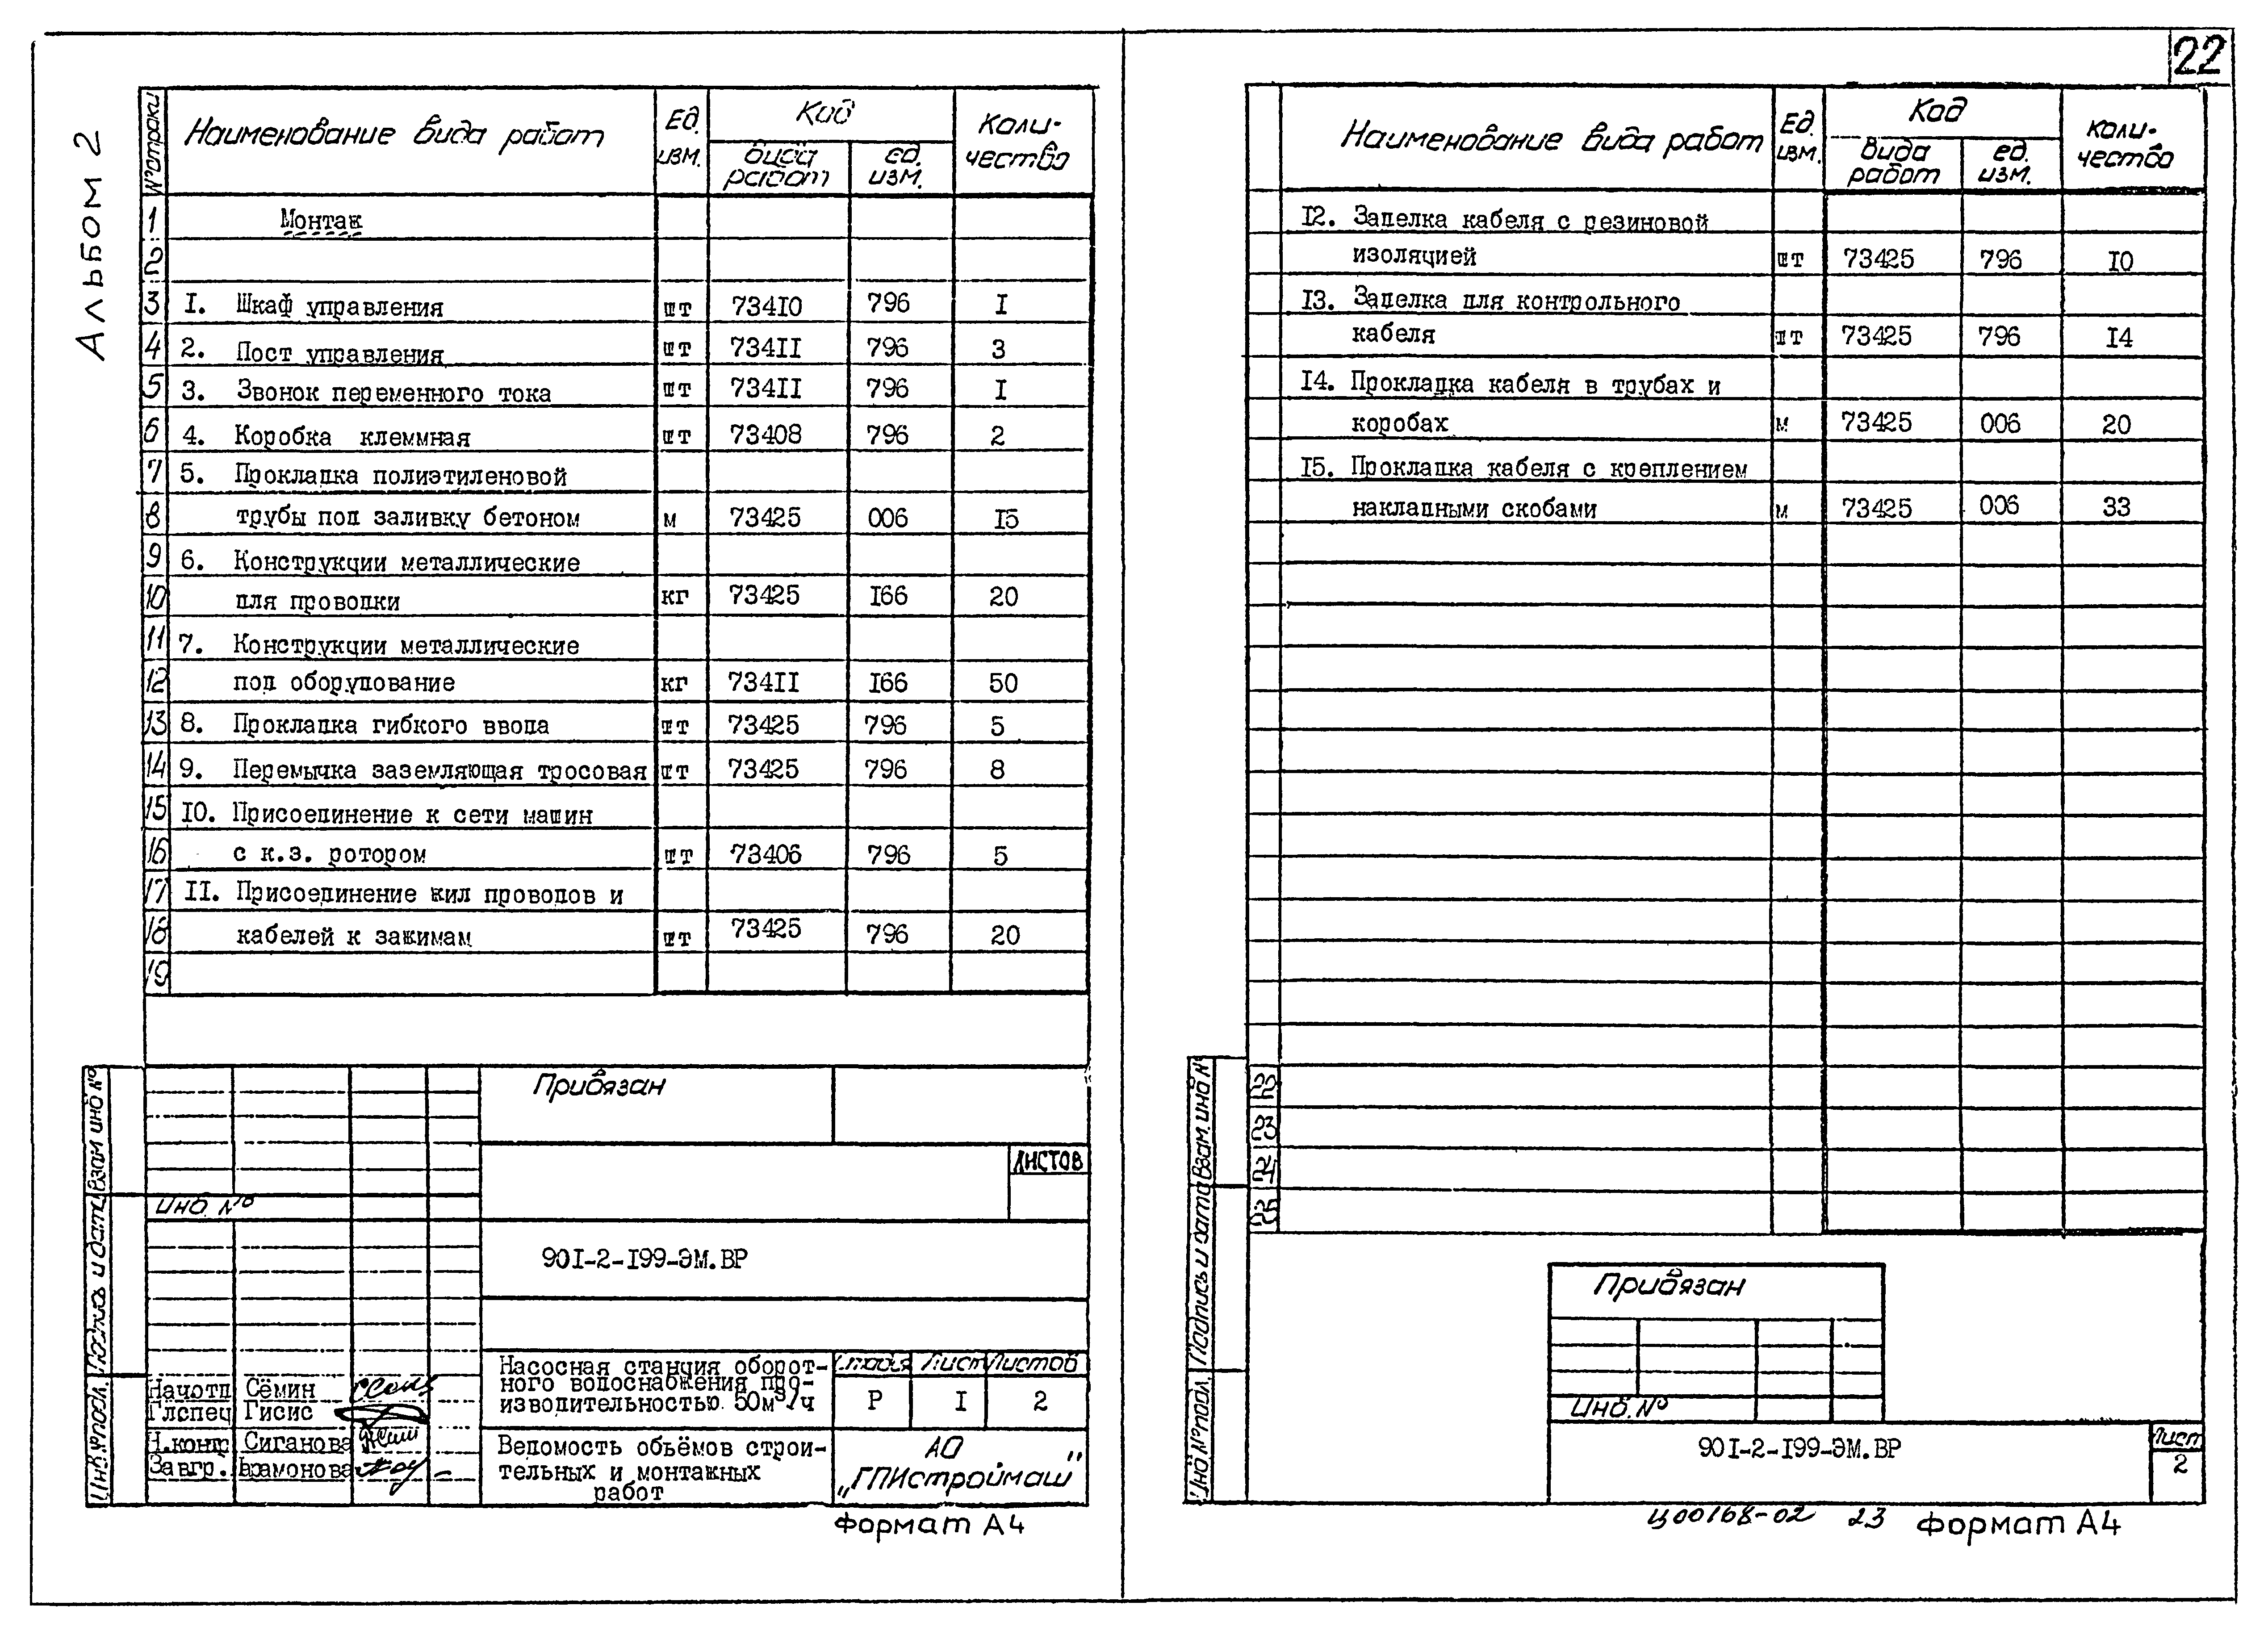 22
АЛЬБОМ 2
№ строки Наименование вида работ Ед. изм. Код вида работ ед. изм. Коли- чество
1 Монтаж
2
3 I. Шкаф управления шт 734I0 796 I
4 2. Пост управления шт 734II 796 3
5 3. Звонок переменного тока шт 734II 796 I
6 4. Коробка клеммная шт 73408 796 2
7 5. Прокладка полиэтиленовой
8 трубы под заливку бетоном м 73425 006 I5
9 6. Конструкции металлические
10 для проводки кг 73425 I66 20
11 7. Конструкции металлические
12 под оборудование кг 734II I66 50
13 8. Прокладка гибкого ввода шт 73425 796 5
14 9. Перемычка заземляющая тросовая шт 73425 796 8
15 I0. Присоединение к сети машин
16 с к.з. ротором шт 73406 796 5
17 II. Присоединение жил проводов и
18 кабелей к зажимам шт 73425 796 20
19
Привязан
Листов
Инв. №
90I-2-I99-ЭМ.ВР
Насосная станция оборот-
ного водоснабжения про-
изводительностью 50м³/ч
Стадия Лист Листов
Р I 2
Нач отд Сёмин
Гл спец Гисис
Н.контр Сиганова
Зав гр. Парамонова
Ведомость объёмов строи-
тельных и монтажных
работ
АО
„ГПИстроймаш"
Инв № подл Подпись и дата Взам инв №
Формат А4
Наименование вида работ Ед. изм. Код вида работ ед. изм. Коли- чество
I2. Заделка кабеля с резиновой
изоляцией шт 73425 796 I0
I3. Заделка для контрольного
кабеля шт 73425 796 I4
I4. Прокладка кабеля в трубах и
коробах м 73425 006 20
I5. Прокладка кабеля с креплением
накладными скобами м 73425 006 33
22
23
24
25
Инв № подл Подпись и дата Взам. инв №
Привязан
Инв. №
90I-2-I99-ЭМ.ВР
Лист
2
Ц00168-02 23 Формат А4